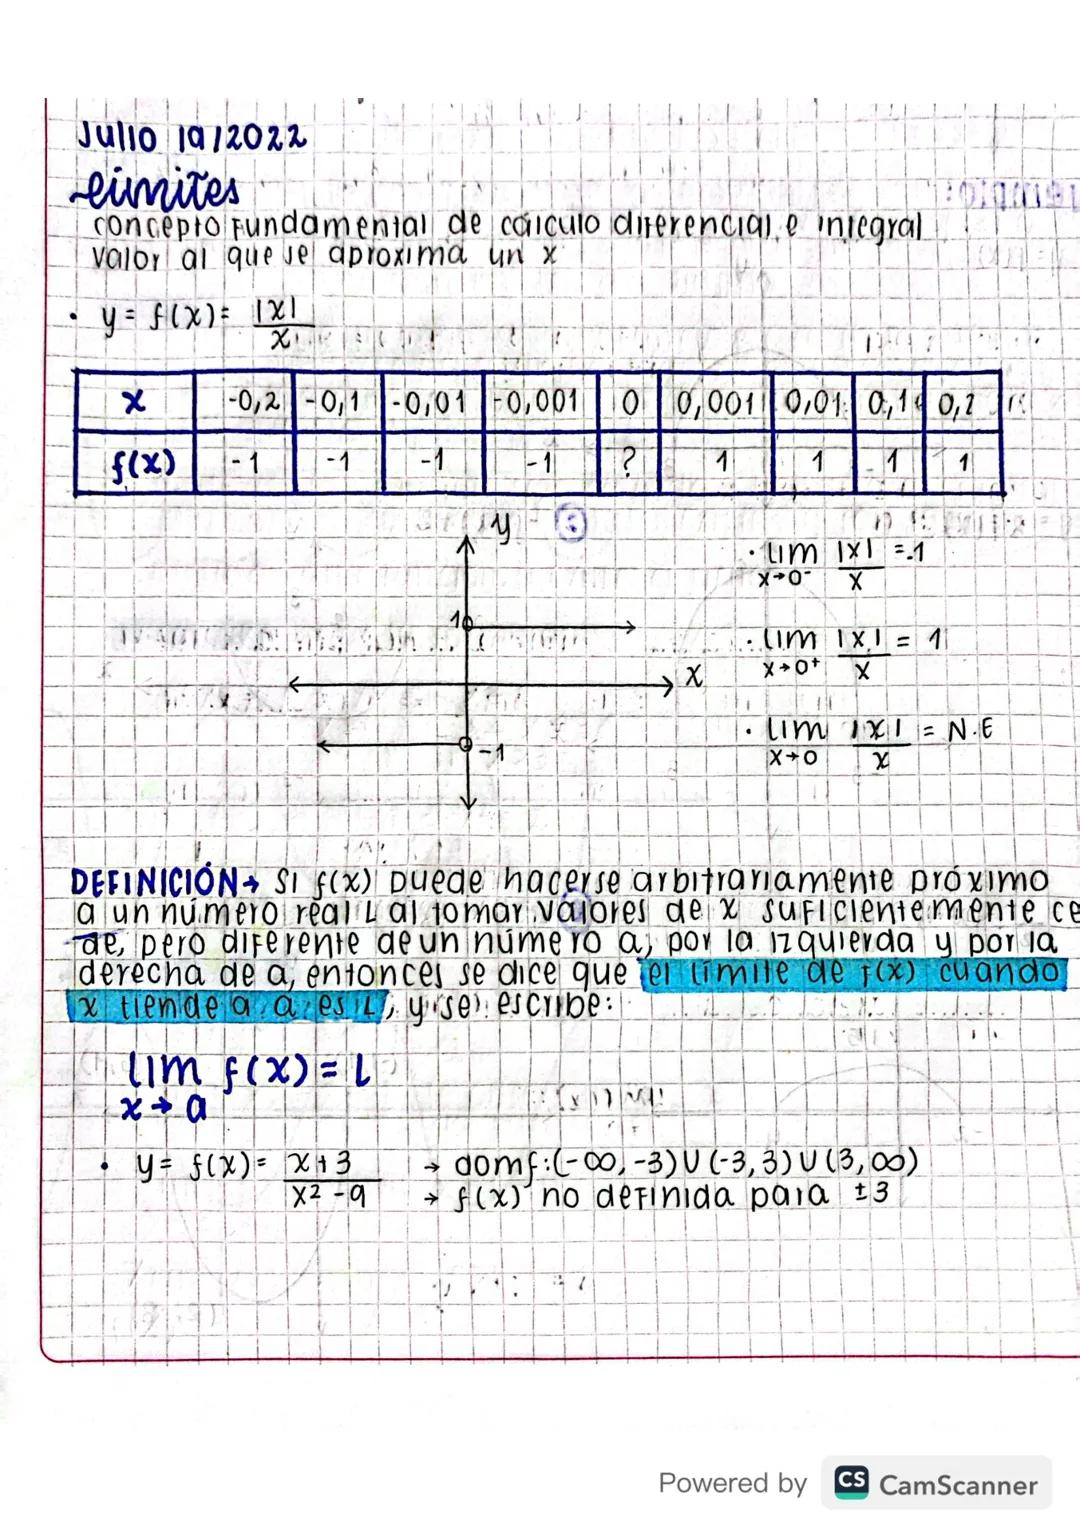 Julio 19/2022
Límites
concepto fundamental de cálculo diferencial e integral
valor al que se aproxima un x
• y = f(x) = |x| / x
x -0,2 -0,1 -0,01 -0,001 0 0,001 0,01 0,1 0,2
f(x) -1 -1 -1 -1 ? 1 1 1 1
y
1
x
-1
• lim x→0⁻ |x| / x = -1
• lim x→0⁺ |x| / x = 1
• lim x→0 |x| / x = N.E
DEFINICIÓN→ Si f(x) puede hacerse arbitrariamente próximo
a un número real L al tomar valores de x suficientemente ce
de, pero diferente de un número a, por la izquierda y por la
derecha de a, entonces se dice que el límite de f(x) cuando
x tiende a a es L, y se escribe:
lim f(x) = L
x → a
• y = f(x) = x+3 / x² - 9 → domf:(-∞,-3)U(-3,3)U(3,∞)
→ f(x) no definida para ±3
Powered by CS CamScanner